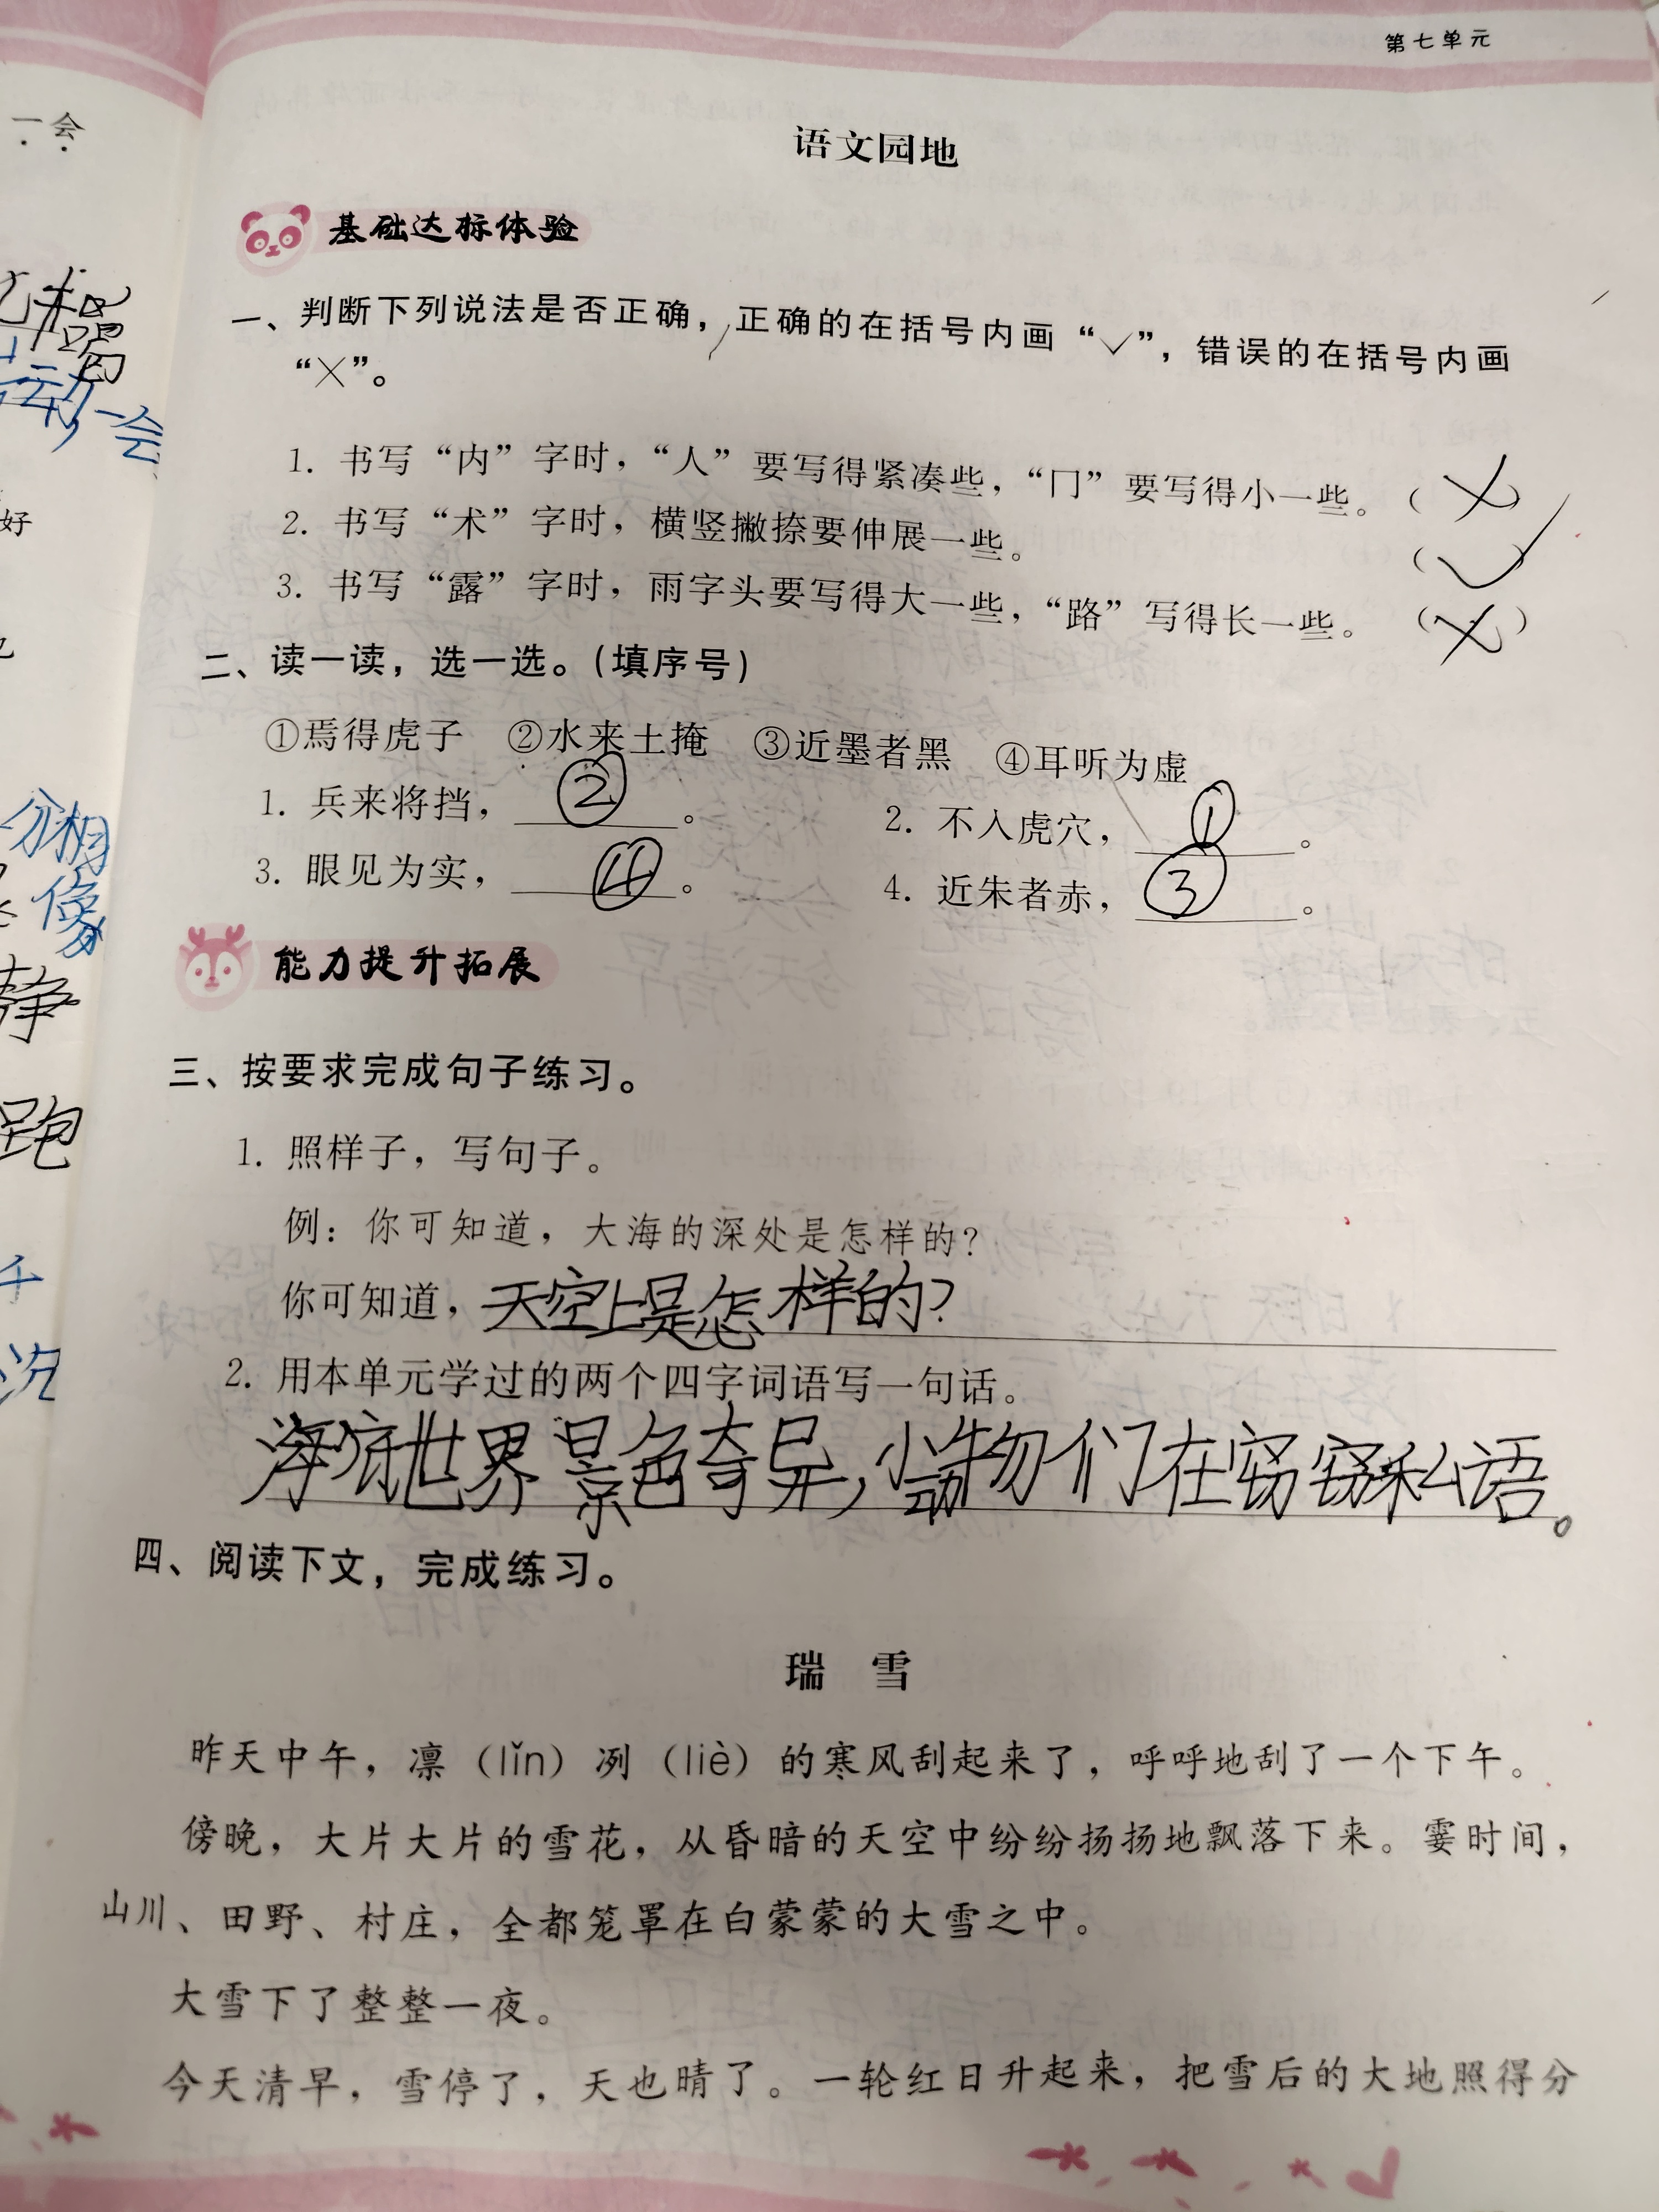 第七单元
一会
语文园地
基础达标体验
一、判断下列说法是否正确，正确的在括号内画“✓”，错误的在括号内画
“×”。
1. 书写“内”字时，“人”要写得紧凑些，“冂”要写得小一些。（×）
2. 书写“术”字时，横竖撇捺要伸展一些。（✓）
3. 书写“露”字时，雨字头要写得大一些，“路”写得长一些。（×）
二、读一读，选一选。（填序号）
①焉得虎子 ②水来土掩 ③近墨者黑 ④耳听为虚
1. 兵来将挡，②。 2. 不入虎穴，①。
3. 眼见为实，④。 4. 近朱者赤，③。
能力提升拓展
三、按要求完成句子练习。
1. 照样子，写句子。
例：你可知道，大海的深处是怎样的？
你可知道，天空上是怎样的？
2. 用本单元学过的两个四字词语写一句话。
海底世界景色奇异，小动物们在窃窃私语。
四、阅读下文，完成练习。
瑞 雪
昨天中午，凛（lǐn）冽（liè）的寒风刮起来了，呼呼地刮了一个下午。
傍晚，大片大片的雪花，从昏暗的天空中纷纷扬扬地飘落下来。霎时间，
山川、田野、村庄，全都笼罩在白蒙蒙的大雪之中。
大雪下了整整一夜。
今天清早，雪停了，天也晴了。一轮红日升起来，把雪后的大地照得分
动一会
好
相
像
静
跑